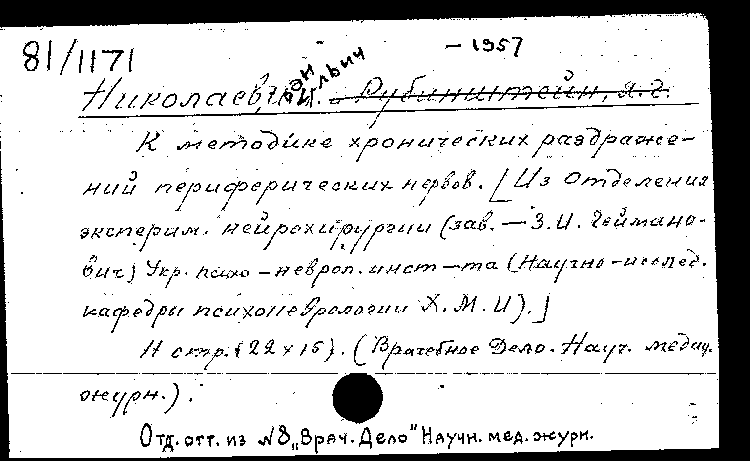 81/1171
– 1957
Николаев, И. Ильич – Рубинштейн, Я. Г.
К методике хронических раздраже-
ний периферических нервов. [Из отделения
эксперим. нейрохирургии (зав. – З. И. Геймано-
вич) Укр. психо-невроп. инст-та (Научно-исслед.
кафедры психоневрологии Х. М. И).]
11 стр. (22 x 15). (Врачебное Дело. Науч. медиц.
журн.).
Отд. отт. из №8 „Врач. Дело" Научн. мед. журн.